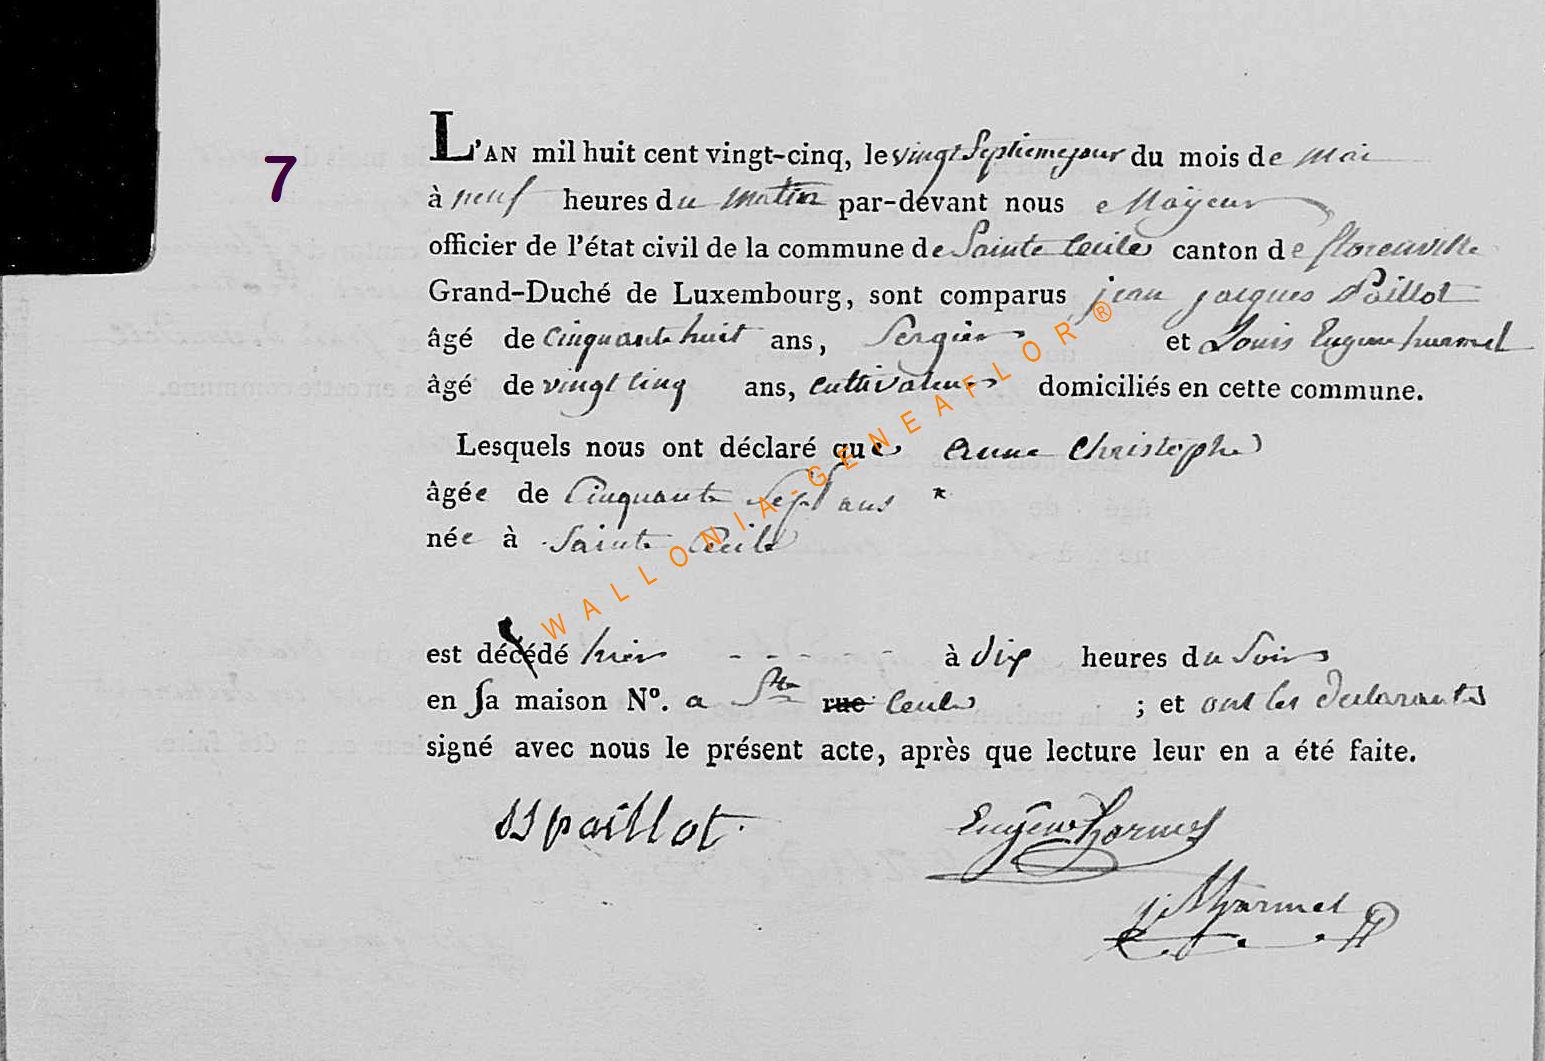 7
L'AN mil huit cent vingt-cinq, le vingt Septieme jour du mois de Mai
à neuf heures du matin par-devant nous Mayeur
officier de l'état civil de la commune de Sainte Cecile canton de florenville
Grand-Duché de Luxembourg, sont comparus jean jacques Paillot
âgé de cinquante huit ans, Sergier et Louis Eugene harmel
âgé de vingt cinq ans, cultivateur domiciliés en cette commune.
Lesquels nous ont déclaré que Anne Christophe
âgée de Cinquante Sept ans *
née à Sainte Cecile
est décédé hier - - - - - - à dix heures du Soir
en Sa maison N°. a Ste rue Cecile ; et ont les declarants
signé avec nous le présent acte, après que lecture leur en a été faite.
JJ paillot.
Eugène harmel
harmel
WALLONIA-GENEAFLOR®